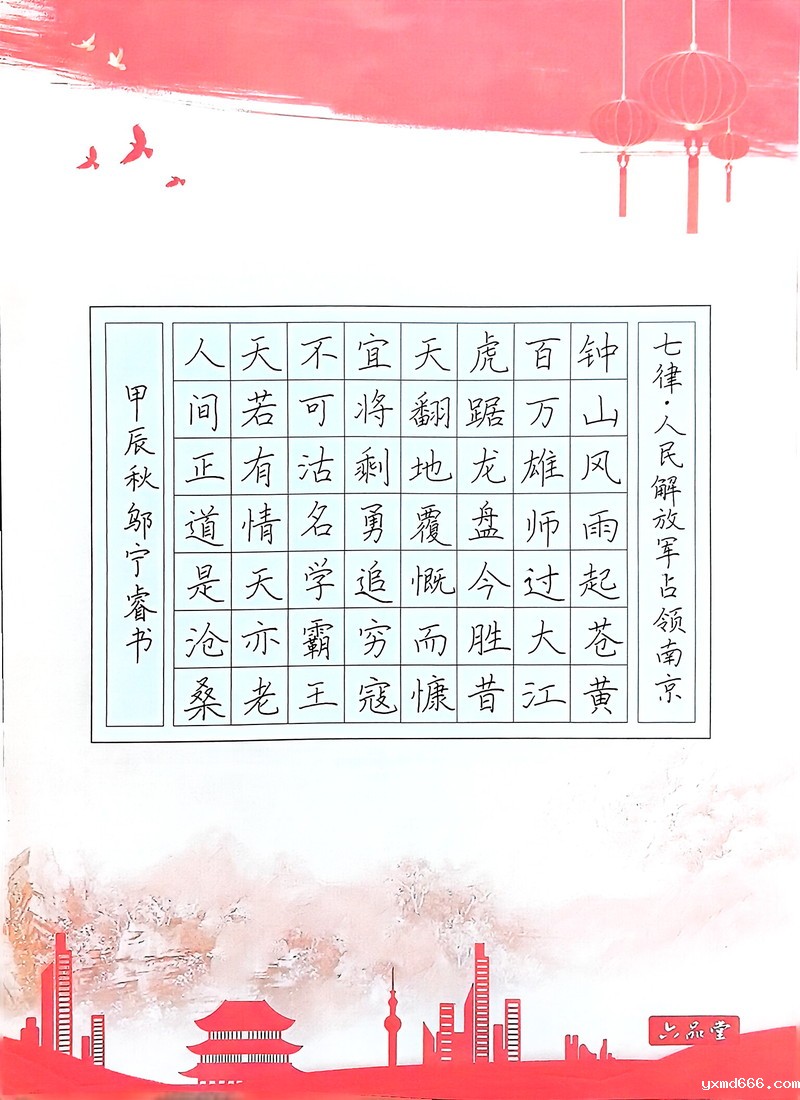 七律·人民解放军占领南京
钟山风雨起苍黄
百万雄师过大江
虎踞龙盘今胜昔
天翻地覆慨而慷
宜将剩勇追穷寇
不可沽名学霸王
天若有情天亦老
人间正道是沧桑
甲辰秋邬宁睿书
六品堂
yxmd666.com